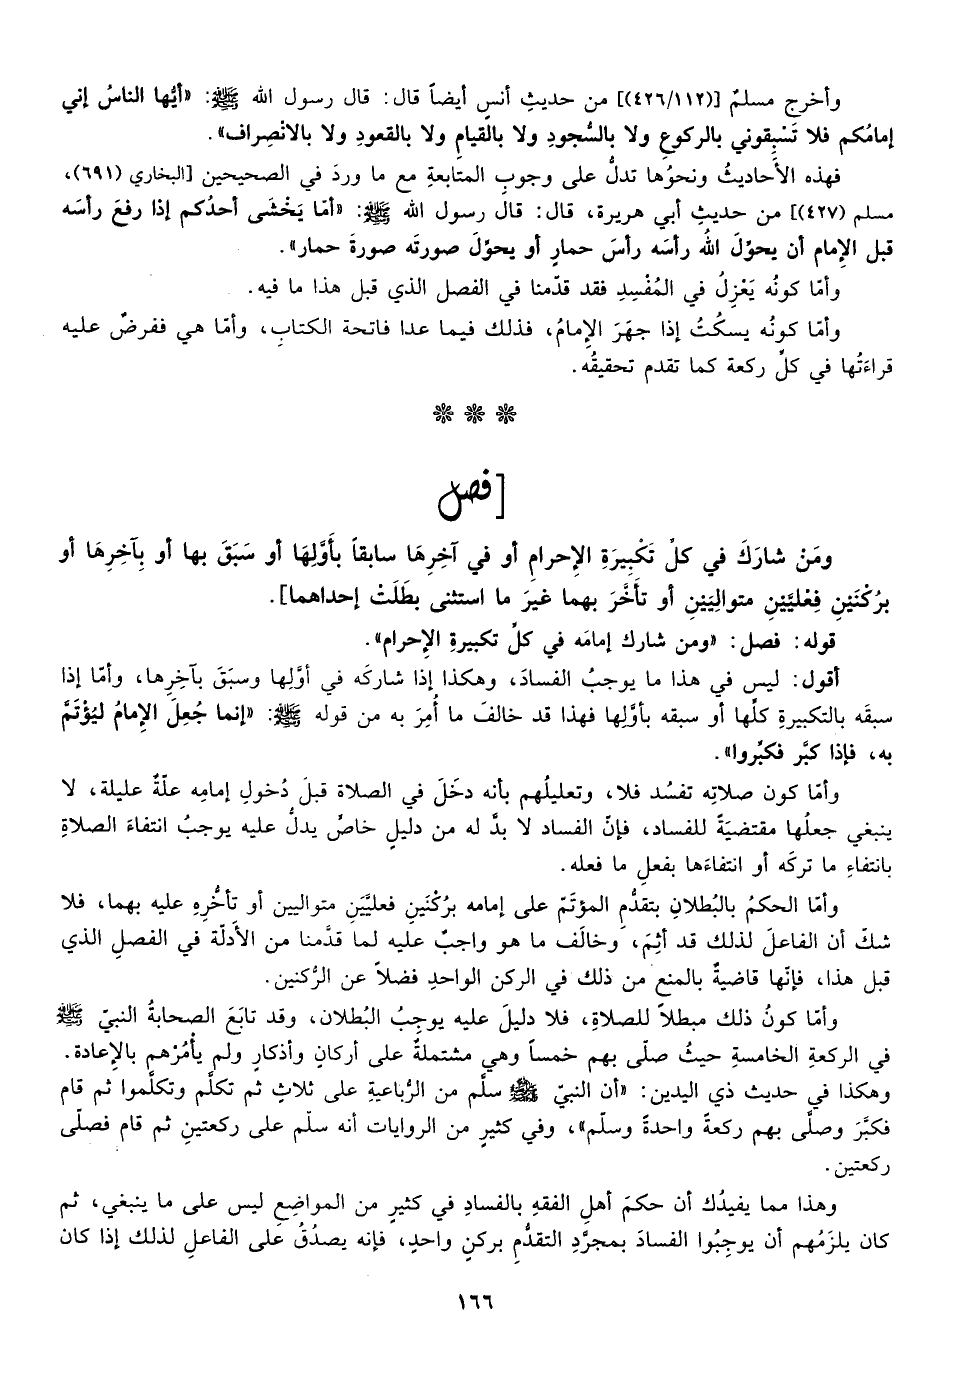 وأخرج مسلمٌ [(٤٢٦/١١٢)] من حديثِ أنسٍ أيضاً قال: قال رسول الله ﷺ: «أيُّها الناسُ إني
إمامُكم فلا تَسْبِقوني بالركوعِ ولا بالسُّجودِ ولا بالقيامِ ولا بالقعودِ ولا بالانْصِراف».
فهذه الأحاديثُ ونحوُها تدلُّ على وجوبِ المتابعةِ مع ما وردَ في الصحيحين [البخاري (٦٩١)،
مسلم (٤٢٧)] من حديثِ أبي هريرة، قال: قال رسول الله ﷺ: «أمَا يَخْشَى أحدُكم إذا رفعَ رأسَه
قبل الإمام أن يحوِّلَ اللهُ رأسَه رأسَ حمارٍ أو يحوِّلَ صورتَه صورةَ حمار».
وأمّا كونُه يَعْزِلُ في المُفْسِدِ فقد قدّمنا في الفصل الذي قبل هذا ما فيه.
وأمّا كونُه يسكُتُ إذا جهَرَ الإمامُ، فذلك فيما عدا فاتحة الكتابِ، وأمّا هي ففرضٌ عليه
قراءَتُها في كلِّ ركعة كما تقدم تحقيقُه.
❊ ❊ ❊
[فصل
ومَنْ شارَكَ في كلِّ تَكْبِيرَةِ الإحرامِ أو في آخرِهَا سابقاً بأَوَّلِهَا أو سَبَقَ بها أو بِآخِرِهَا أو
برُكْنَيْنِ فِعْليَّيْنِ متوالِيَيْنِ أو تأخَّرَ بهما غيرَ ما استثنى بطَلَتْ إحداهما].
قوله: فصل: «ومن شارك إمامَه في كلِّ تكبيرةِ الإحرام».
أقول: ليس في هذا ما يوجبُ الفسادَ، وهكذا إذا شاركَه في أوَّلِها وسبَقَ بآخرِها، وأمّا إذا
سبقَه بالتكبيرةِ كلِّها أو سبقه بأوَّلِها فهذا قد خالفَ ما أُمِرَ به من قوله ﷺ: «إنما جُعِلَ الإمامُ ليُؤْتَمَّ
به، فإذا كبَّر فكبِّروا».
وأمّا كون صلاتِه تفسُد فلا، وتعليلُهم بأنه دخَلَ في الصلاة قبلَ دُخولِ إمامِه علّةٌ عليلة، لا
ينبغي جعلُها مقتضيَةً للفساد، فإنّ الفساد لا بدَّ له من دليلٍ خاصٍّ يدلُّ عليه يوجبُ انتفاءَ الصلاةِ
بانتفاءِ ما تركَه أو انتفاءَها بفعلِ ما فعله.
وأمّا الحكمُ بالبُطلانِ بتقدُّمِ المؤتَمّ على إمامه برُكْنَينِ فعليَّيَنِ متواليين أو تأخُّرِهِ عليه بهما، فلا
شكّ أن الفاعلَ لذلك قد أثِمَ، وخالَف ما هو واجبٌ عليه لما قدَّمنا من الأدلّة في الفصلِ الذي
قبل هذا، فإنّها قاضيةٌ بالمنع من ذلك في الركن الواحدِ فضلاً عن الرُّكنين.
وأمّا كونُ ذلك مبطلاً للصلاةِ، فلا دليلَ عليه يوجِبُ البُطلان، وقد تابَعَ الصحابةُ النبيّ ﷺ
في الركعةِ الخامسةِ حيثُ صلّى بهم خمساً وهي مشتملةٌ على أركانٍ وأذكارٍ ولم يأمُرْهم بالإعادة.
وهكذا في حديث ذي اليدين: «أن النبيّ ﷺ سلَّم من الرُّباعيةِ على ثلاثٍ ثم تكلَّم وتكلَّموا ثم قام
فكبَّرَ وصلَّى بهم ركعةً واحدةً وسلّم»، وفي كثيرٍ من الروايات أنه سلّم على ركعتينِ ثم قام فصلّى
ركعتين.
وهذا مما يفيدُك أن حكمَ أهلِ الفقهِ بالفسادِ في كثيرٍ من المواضِعِ ليس على ما ينبغي، ثم
كان يلزَمُهم أن يوجِبُوا الفسادَ بمجرَّدِ التقدُّمِ بركنٍ واحدٍ، فإنه يصدُقُ على الفاعلِ لذلك إذا كان
١٦٦